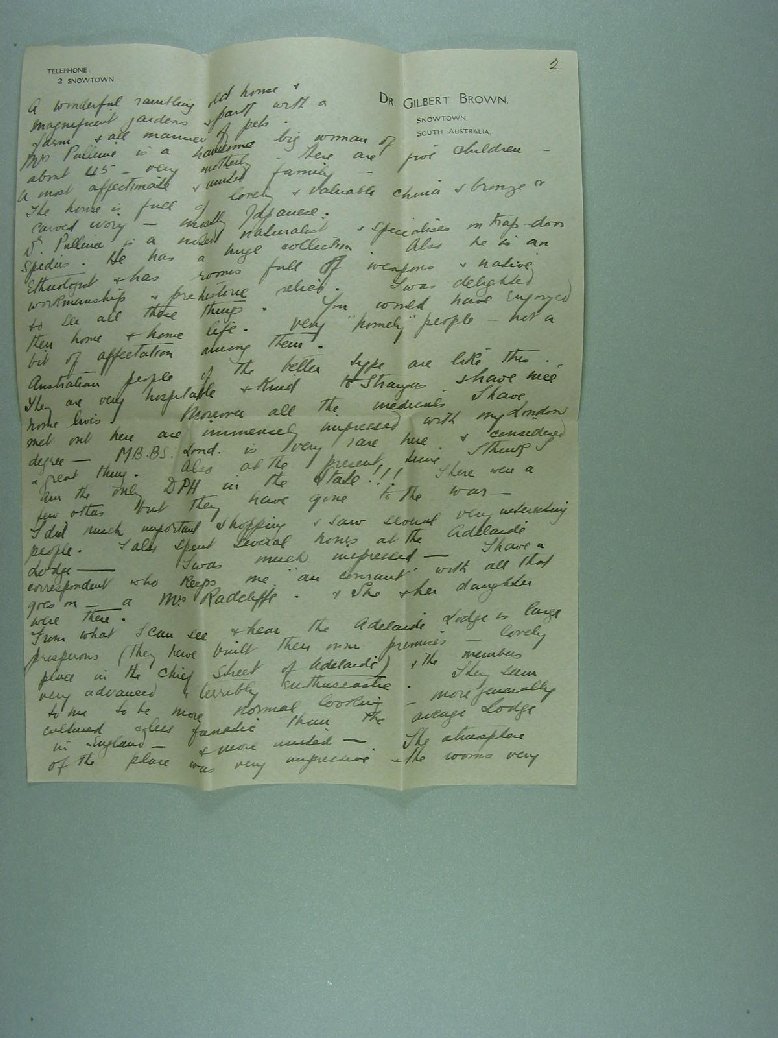 2
TELEPHONE:
2 SNOWTOWN
DR GILBERT BROWN,
SNOWTOWN,
SOUTH AUSTRALIA,
A wonderful rambling old home &
magnificent gardens & part with a
farm & all manner of pets.
Mrs Pulleine is a handsome big woman of
about 45 – very motherly – there are five children –
A most affectionate & united family –
The home is full of lovely & valuable china & bronze &
carved ivory – mostly Japanese.
Dr Pulleine is a naturalist & specialises in trap-door
spiders. He has a huge collection. Also he is an
Ethnologist & has rooms full of weapons & native
workmanship & prehistoric relics. I was delighted
to see all these things. You would have enjoyed
their home & home life. Very "homely" people – not a
bit of affectation among them.
Australian people of the better type are like this.
They are very hospitable & kind to strangers & have nice
home lives! Moreover all the medicals I have
met out here are immensely impressed with my London
degree – M.B.BS. Lond. is very rare here & considered
a great thing. Also at the present time I think I
am the only DPH in the State!!! There were a
few others but they have gone to the war –
I did much important shopping & saw several very interesting
people. I also spent several hours at the Adelaide
Lodge – I was much impressed – I have a
correspondent who keeps me "au courant" with all that
goes on – a Mrs Radcliffe. & She & her daughter
were there.
From what I can see & hear the Adelaide Lodge is large
prosperous (they have built their own premises – lovely
place in the chief Street of Adelaide) & the members
very advanced & terribly enthusiastic. They seem
to me to be more normal looking – more generally
cultured & less fanatic than the average Lodge
in England – & more united – The atmosphere
of the place was very impressive & the rooms very